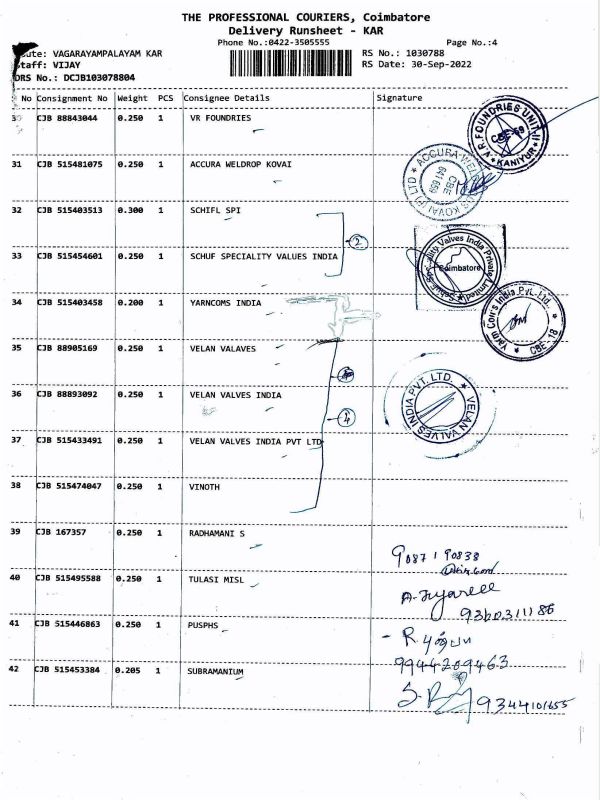 THE PROFESSIONAL COURIERS, Coimbatore
Delivery Runsheet - KAR
Phone No.:0422-3505555 Page No.:4
VAGARAYAMPALAYAM KAR RS No.: 1030788
VIJAY RS Date: 30-Sep-2022
DRS No.: DCJB103078804
No Consignment No Weight PCS Consignee Details Signature
CJB 88843044 0.250 1 VR FOUNDRIES
V.R FOUNDRIES UNIT-II CBE-59 KANIYUR
31 CJB 515481075 0.250 1 ACCURA WELDROP KOVAI
ACCURA KOVAI (P) LTD CBE 641 659
32 CJB 515403513 0.300 1 SCHIFL SPI
2
33 CJB 515454601 0.250 1 SCHUF SPECIALITY VALUES INDIA
Schuf Speciality Valves India Private Limited Coimbatore
34 CJB 515403458 0.200 1 YARNCOMS INDIA
Yarn Com's India Pvt. Ltd. CBE-18
35 CJB 88905169 0.250 1 VELAN VALAVES
36 CJB 88893092 0.250 1 VELAN VALVES INDIA
VELAN VALVES INDIA PVT. LTD.
4
37 CJB 515433491 0.250 1 VELAN VALVES INDIA PVT LTD
38 CJB 515474047 0.250 1 VINOTH
39 CJB 167357 0.250 1 RADHAMANI S
90871 90838
40 CJB 515495588 0.250 1 TULASI MISL
9360311186
41 CJB 515446863 0.250 1 PUSPHS
- R. புஷ்பா
9944209463
42 CJB 515453384 0.205 1 SUBRAMANIUM
9344101655